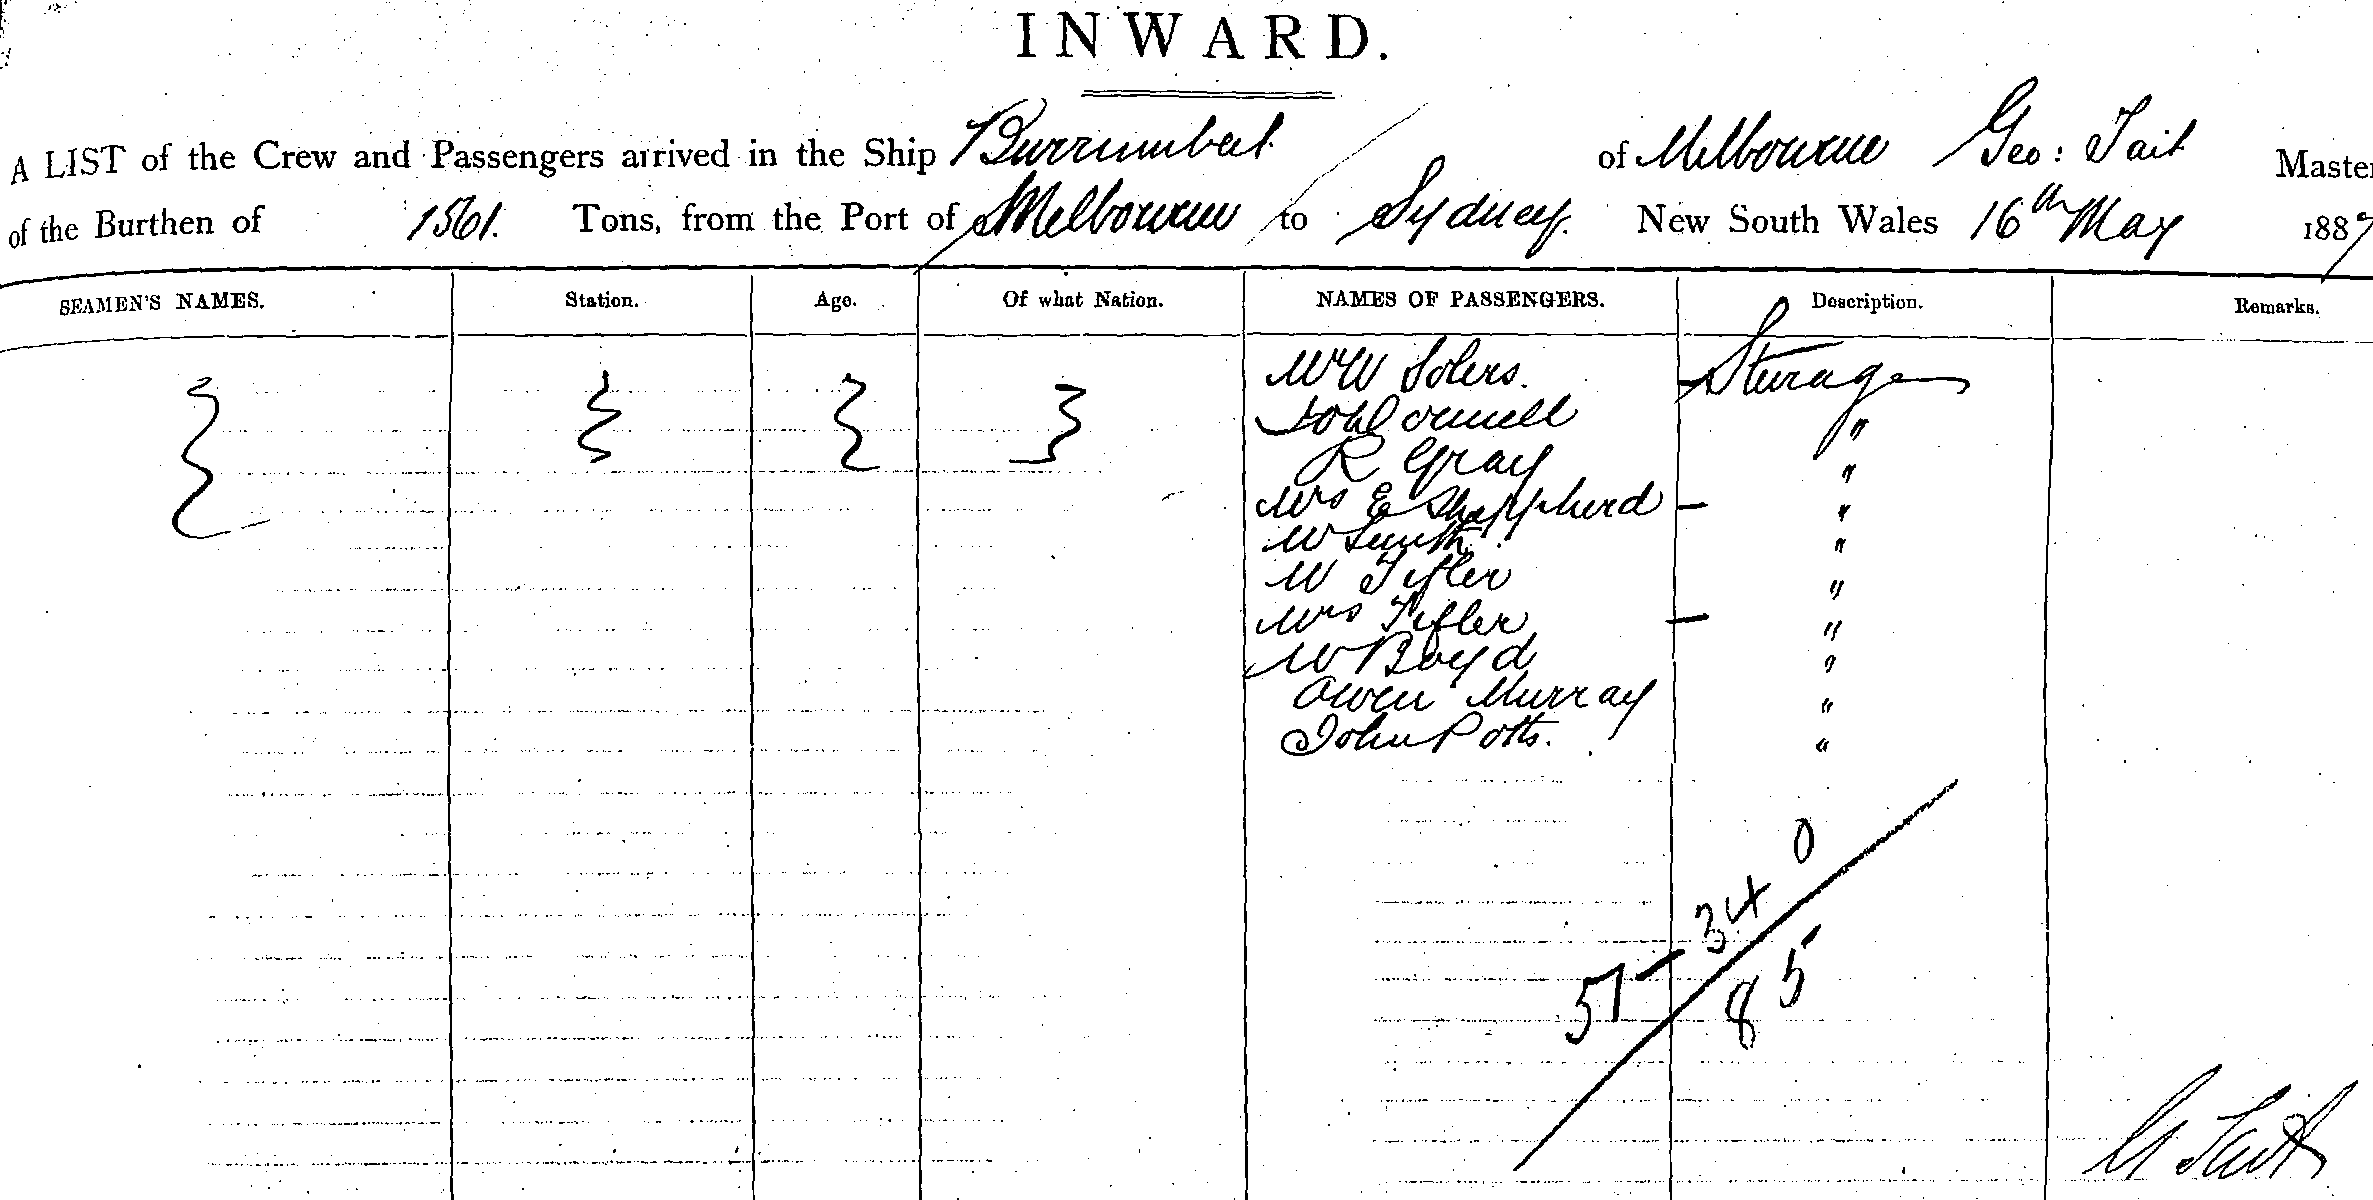 INWARD.
A LIST of the Crew and Passengers arrived in the Ship Burrumbeet of Melbourne Geo: Tait Master
of the Burthen of 1561. Tons, from the Port of Melbourne to Sydney. New South Wales 16th May 1887
SEAMEN'S NAMES. Station. Age. Of what Nation. NAMES OF PASSENGERS. Description. Remarks.
Steerage
Connell "
R Gray "
Mrs E Shappherd "
W Smith "
W "
Mrs "
W Boyd "
Owen Murray "
John Potts. "
0
34
51
85
G Tait